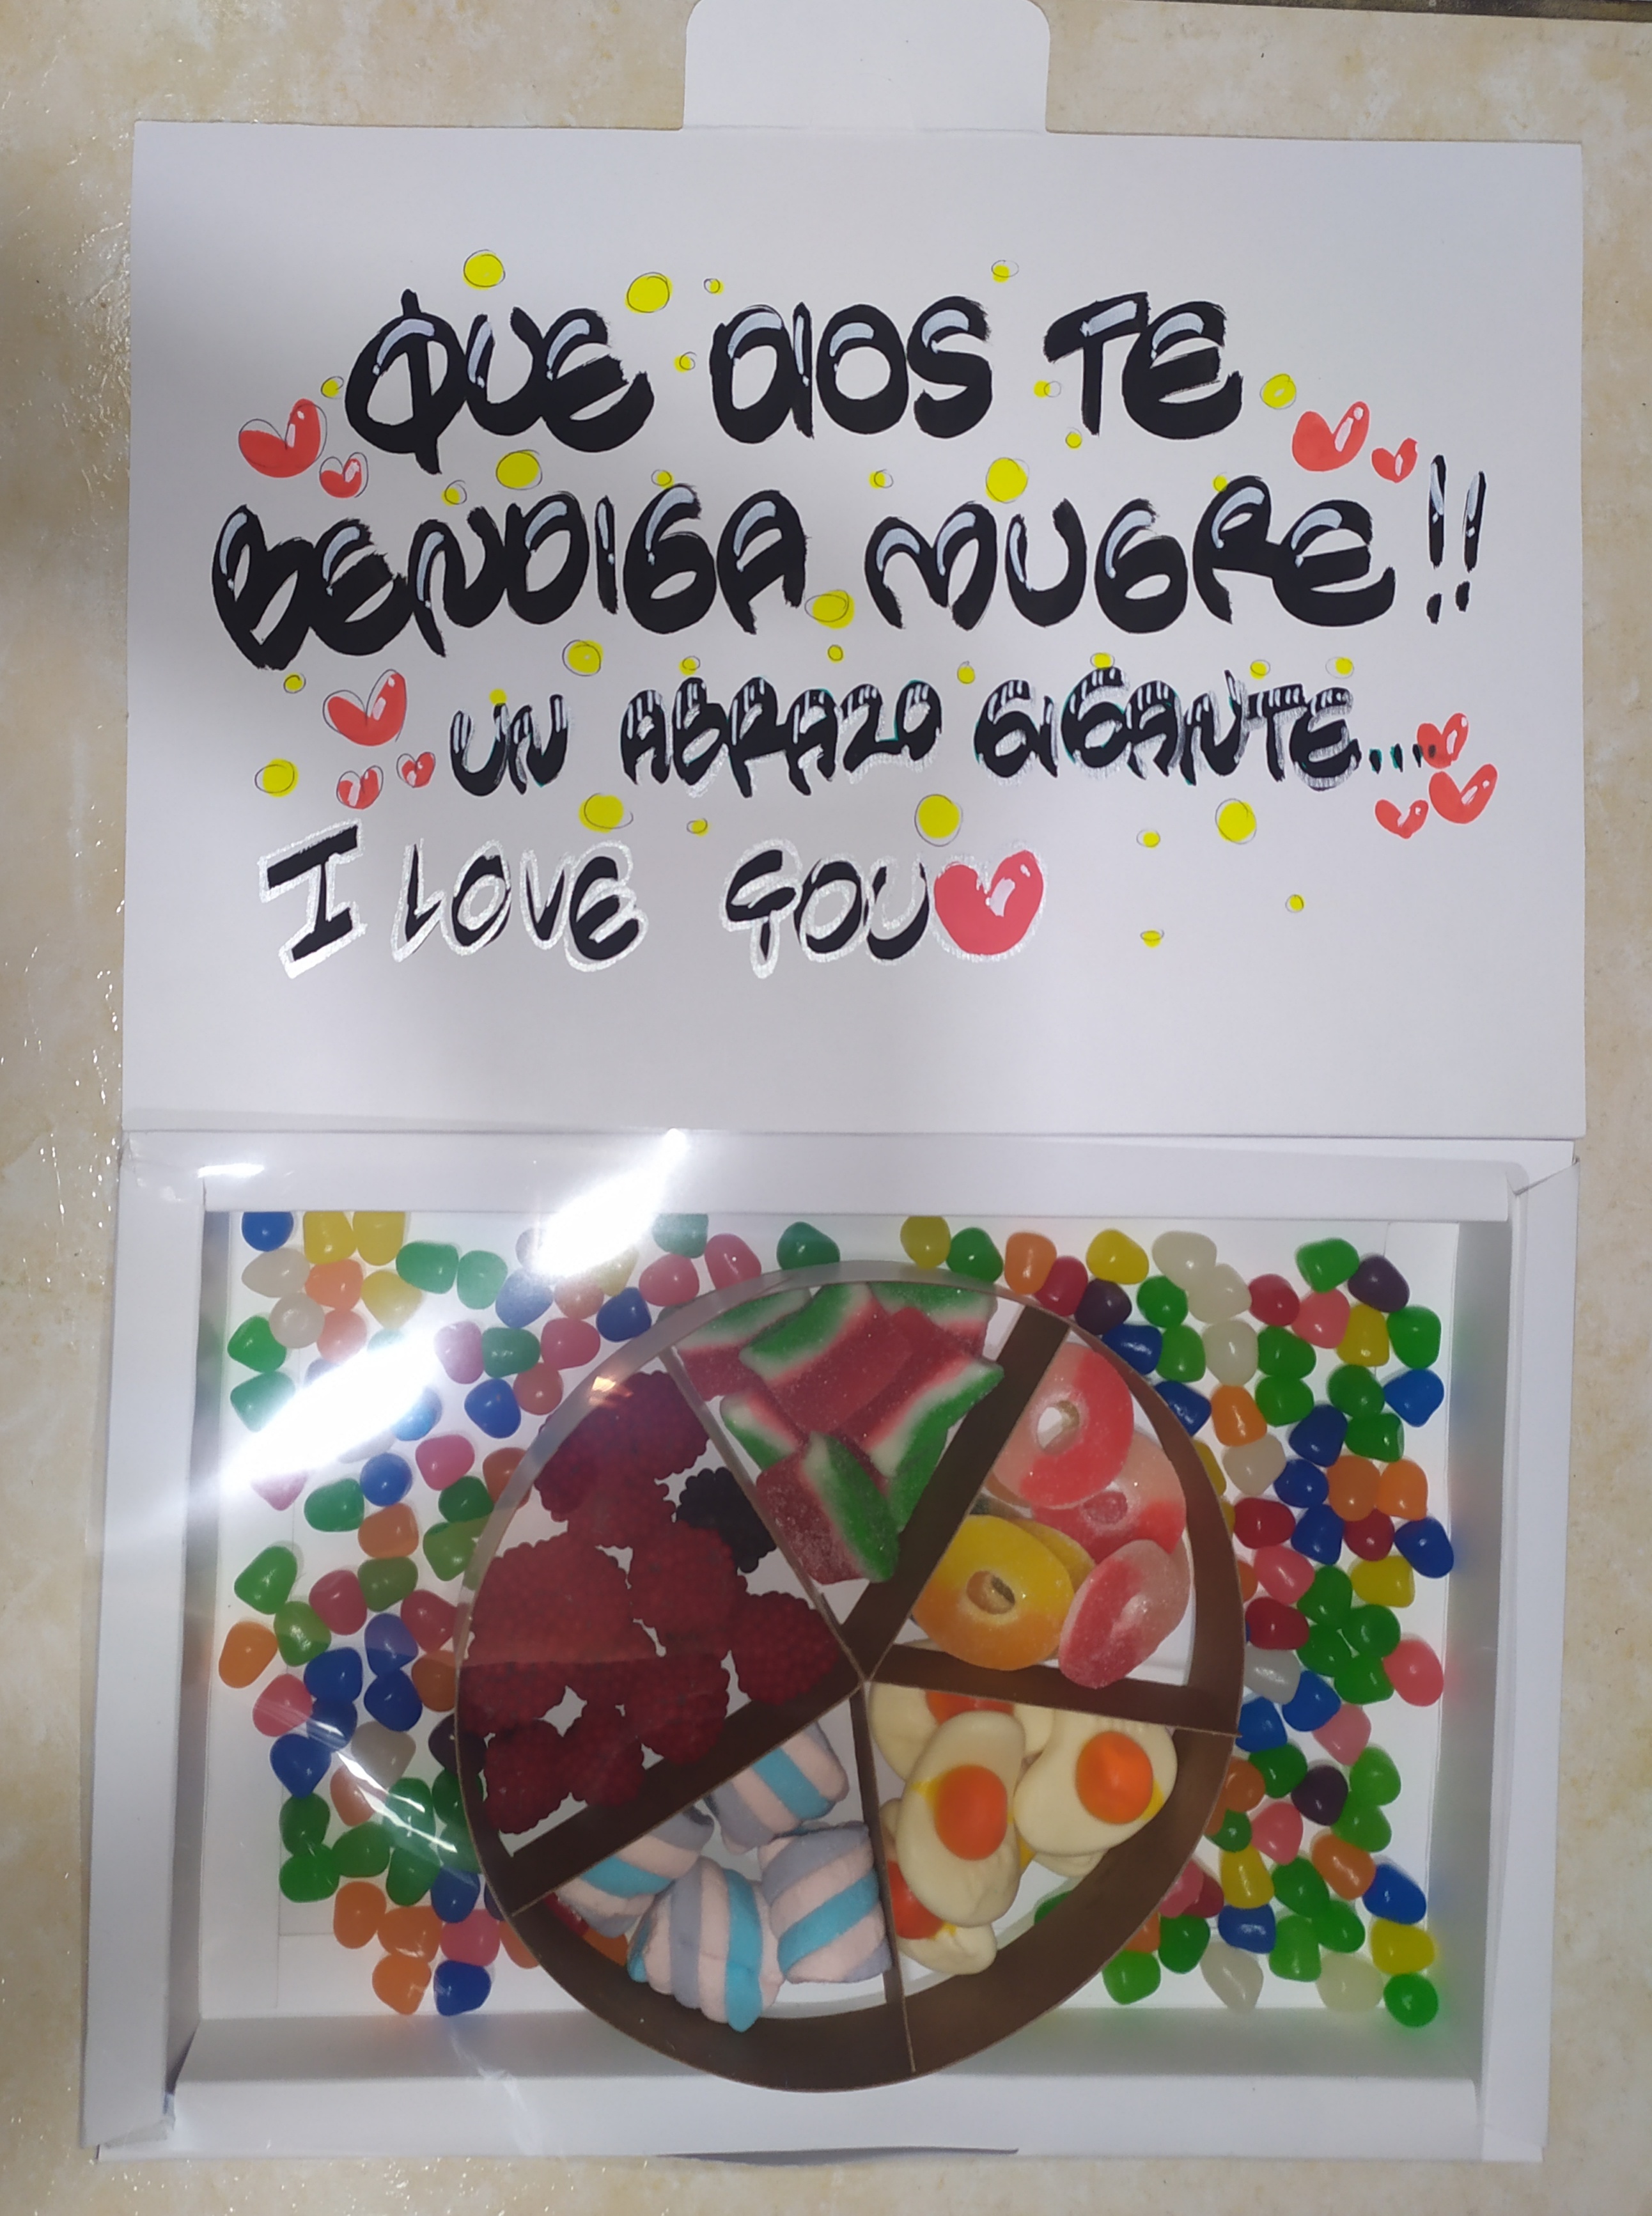 QUE DIOS TE
BENDIGA MUGRE!!
UN ABRAZO GIGANTE...
I LOVE YOU